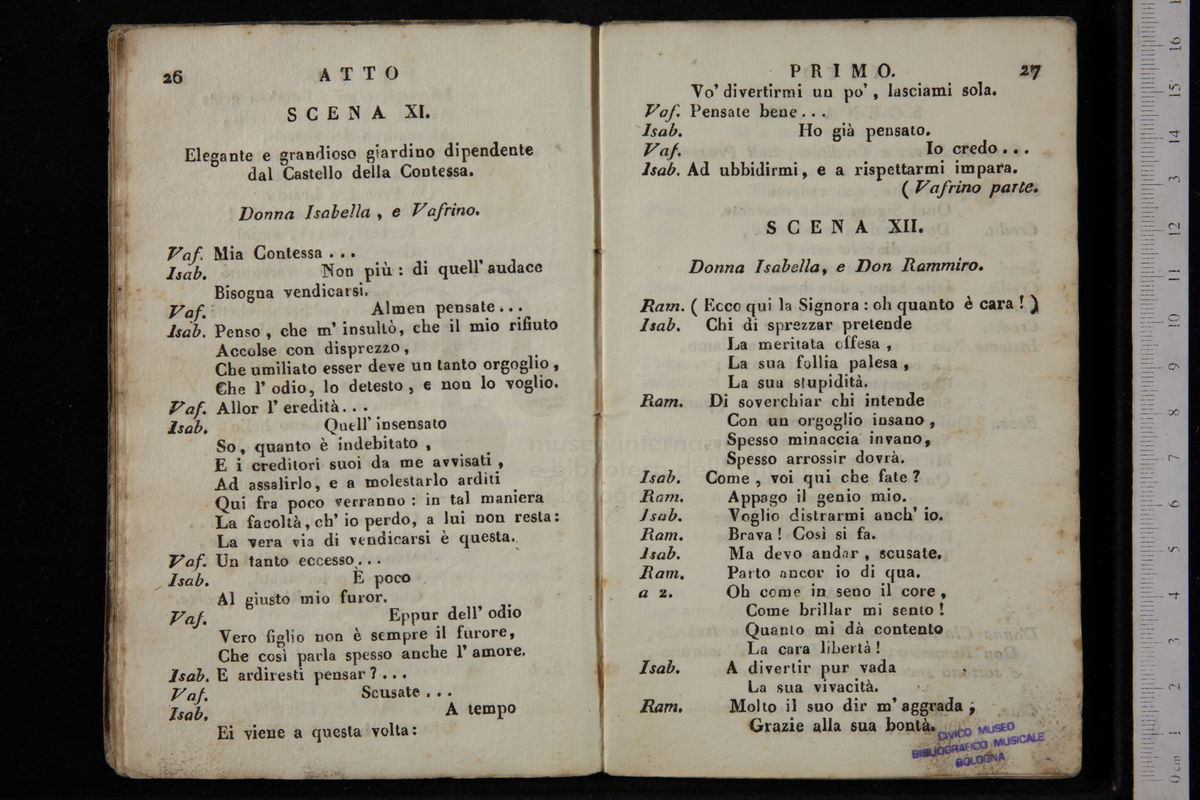 26 ATTO
SCENA XI.
Elegante e grandioso giardino dipendente
dal Castello della Contessa.
Donna Isabella, e Vafrino.
Vaf. Mia Contessa...
Isab. Non più: di quell' audace
Bisogna vendicarsi.
Vaf. Almen pensate...
Isab. Penso, che m' insultò, che il mio rifiuto
Accolse con disprezzo,
Che umiliato esser deve un tanto orgoglio,
Che l' odio, lo detesto, e non lo voglio.
Vaf. Allor l' eredità...
Isab. Quell' insensato
So, quanto è indebitato,
E i creditori suoi da me avvisati,
Ad assalirlo, e a molestarlo arditi
Qui fra poco verranno: in tal maniera
La facoltà, ch' io perdo, a lui non resta:
La vera via di vendicarsi è questa.
Vaf. Un tanto eccesso...
Isab. È poco
Al giusto mio furor.
Vaf. Eppur dell' odio
Vero figlio non è sempre il furore,
Che così parla spesso anche l' amore.
Isab. E ardiresti pensar?...
Vaf. Scusate...
Isab. A tempo
Ei viene a questa volta:
PRIMO. 27
Vo' divertirmi un po', lasciami sola.
Vaf. Pensate bene...
Isab. Ho già pensato.
Vaf. Io credo...
Isab. Ad ubbidirmi, e a rispettarmi impara.
(Vafrino parte.
SCENA XII.
Donna Isabella, e Don Rammiro.
Ram. (Ecco qui la Signora: oh quanto è cara!)
Isab. Chi di sprezzar pretende
La meritata offesa,
La sua follia palesa,
La sua stupidità.
Ram. Di soverchiar chi intende
Con un orgoglio insano,
Spesso minaccia invano,
Spesso arrossir dovrà.
Isab. Come, voi qui che fate?
Ram. Appago il genio mio.
Isab. Voglio distrarmi anch' io.
Ram. Brava! Così si fa.
Isab. Ma devo andar, scusate.
Ram. Parto ancor io di qua.
a 2. Oh come in seno il core,
Come brillar mi sento!
Quanto mi dà contento
La cara libertà!
Isab. A divertir pur vada
La sua vivacità.
Ram. Molto il suo dir m' aggrada;
Grazie alla sua bontà.
CIVICO MUSEO
BIBLIOGRAFICO MUSICALE
BOLOGNA
0 cm 1 2 3 4 5 6 7 8 9 10 11 12 13 14 15 16